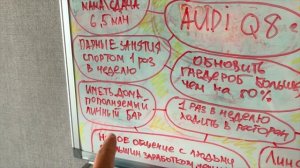 6,5 МЛН
AUDI Q8
ПАРНЫЕ ЗАНЯТИЯ
СПОРТОМ 1 РАЗ
В НЕДЕЛЮ
ОБНОВИТЬ
ГАРДЕРОБ БОЛЬШЕ
ЧЕМ НА 50%
ИМЕТЬ ДОМА
ПОПОЛНЯЕМЫЙ
ЛИЧНЫЙ БАР
1 РАЗ В НЕДЕЛЮ
ХОДИТЬ В РЕСТОРАН
ОБЩЕНИЕ С ЛЮДЬМИ
ЗАРАБОТКОМ